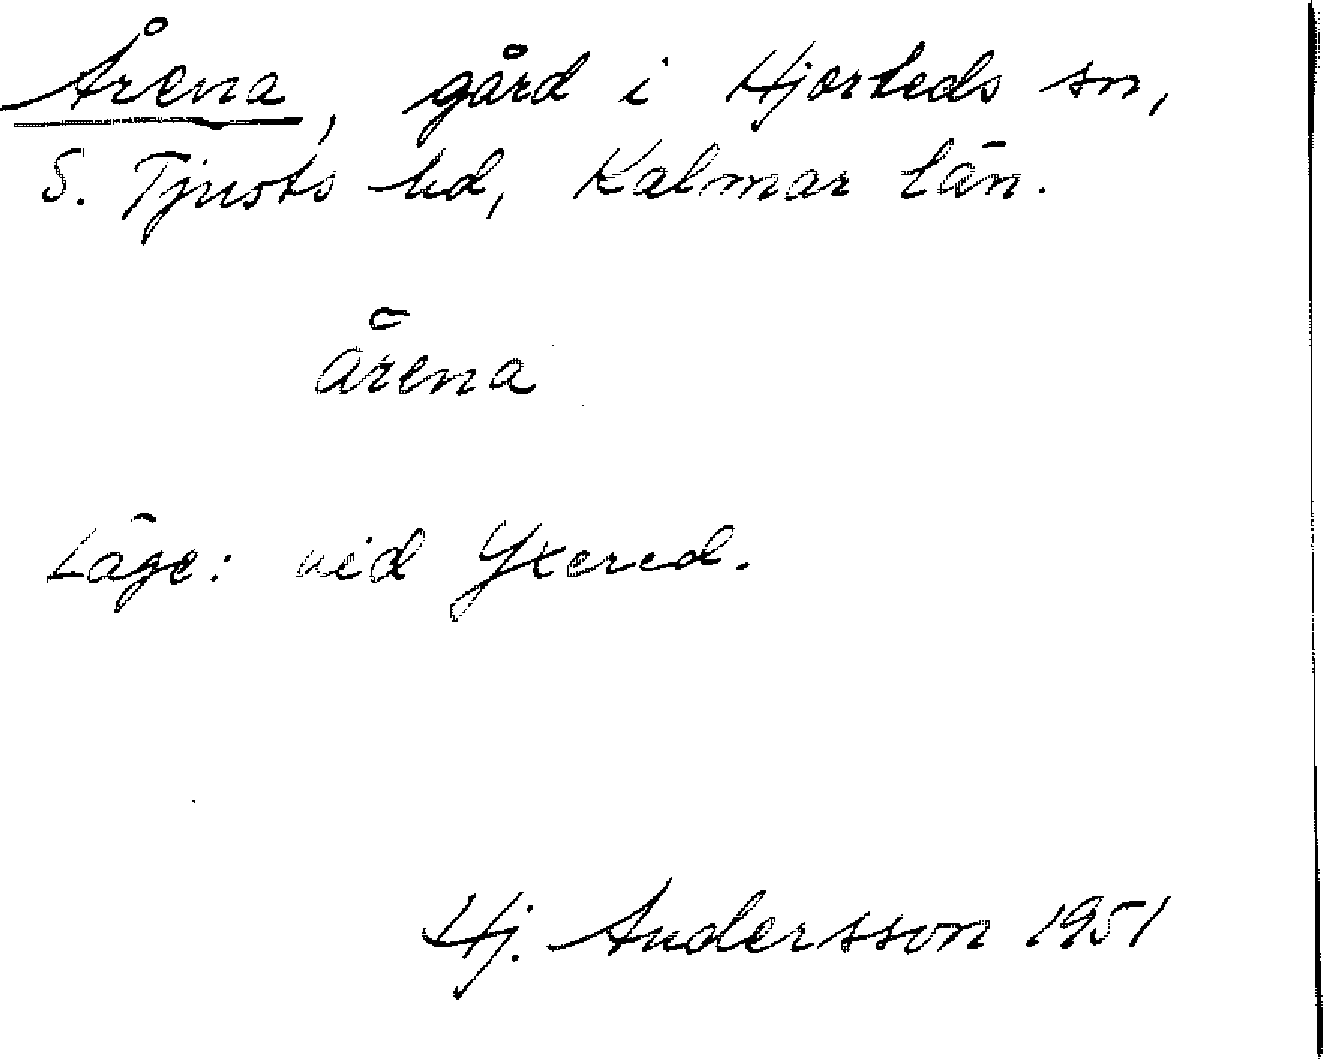 Årena, gård i Hjorteds sn,
S. Tjusts hd, Kalmar län.
årena
Läge: vid Yxered.
Hj. Andersson 1951